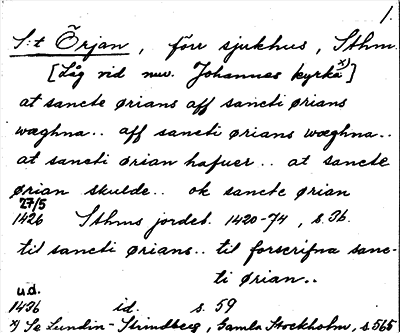 1.
S:t Örjan, förr sjukhus, Sthm.
[Låg vid nuv. Johannes kyrka x)]
at sancte ørians aff sancti ørians
wæghna.. aff sancti ørians wæghna..
at sancti ørian hafuer.. at sancte
ørian skulde.. ok sancte ørian
27/5
1426 Sthms jordeb. 1420-74, s. 36.
til sancti ørians.. til forscrifna sanc-
ti ørian..
u.d.
1436 id. s. 59
x) Se Lundin-Strindberg, Gamla Stockholm, s 565